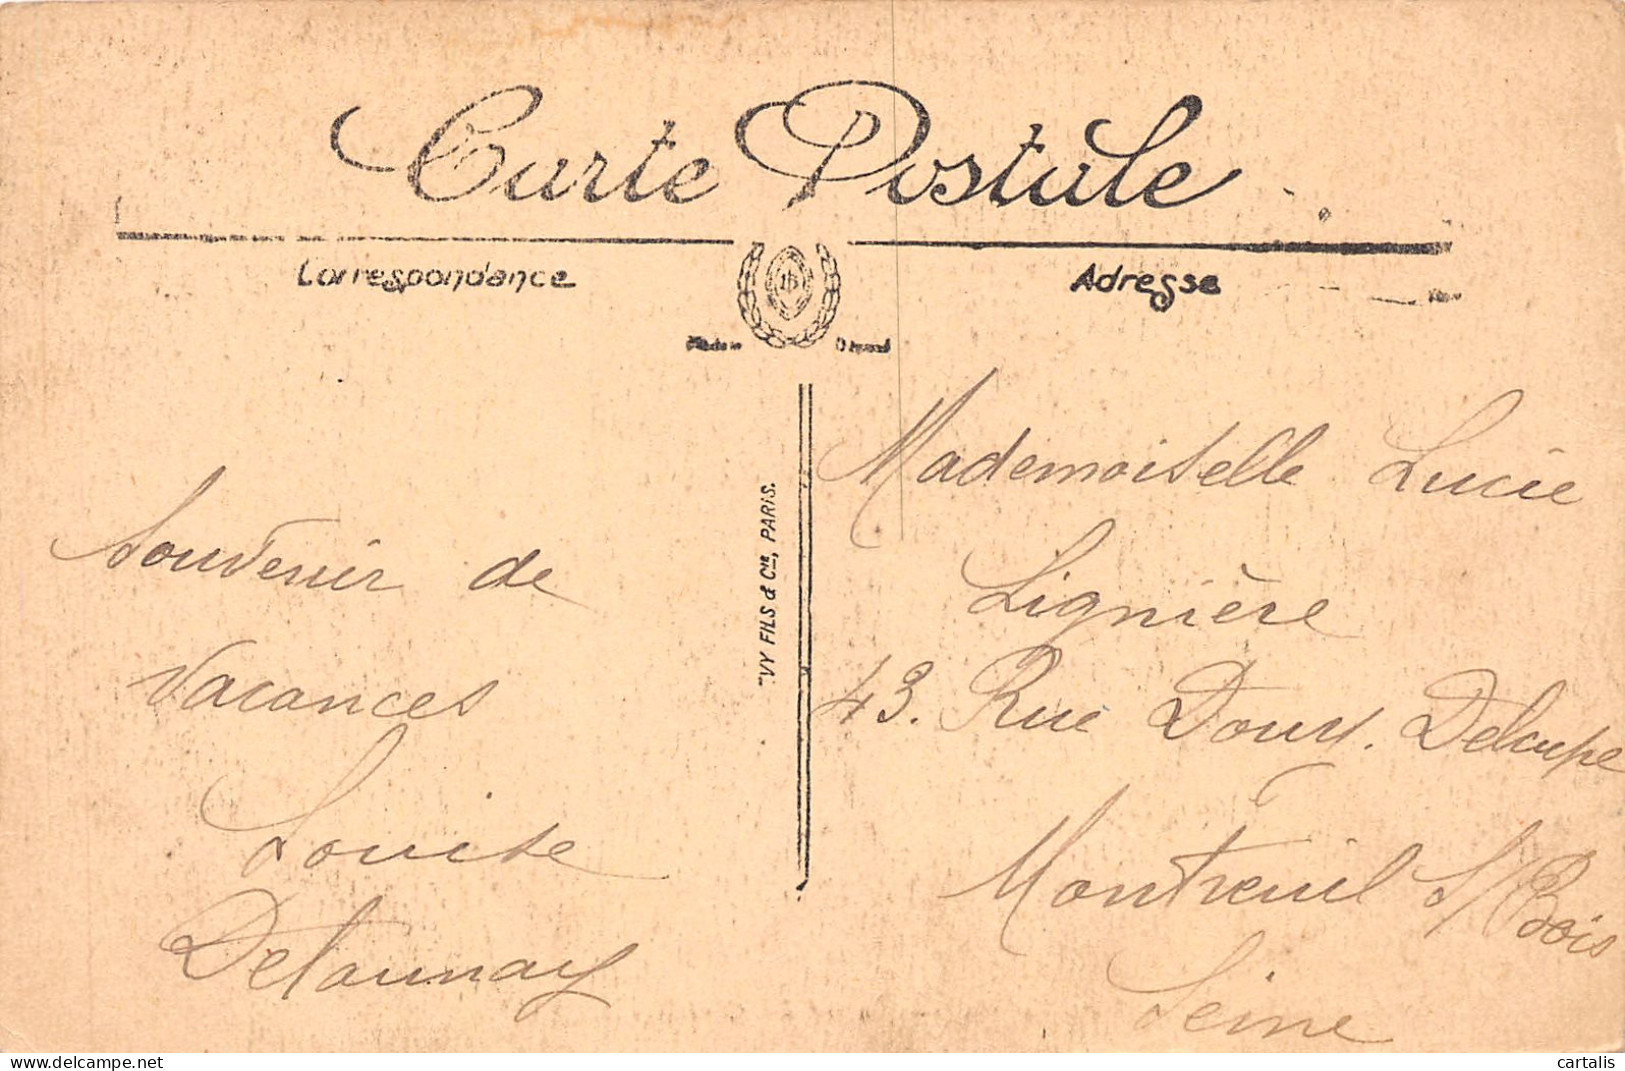 Carte Postale
Correspondance
Adresse
LD
VY FILS & Cie, PARIS.
Souvenir de
Vacances
Louise
Delaunay
Mademoiselle Lucie
Lignière
43. Rue Douy. Delcupe
Montreuil s/ Bois
Seine
cartalis